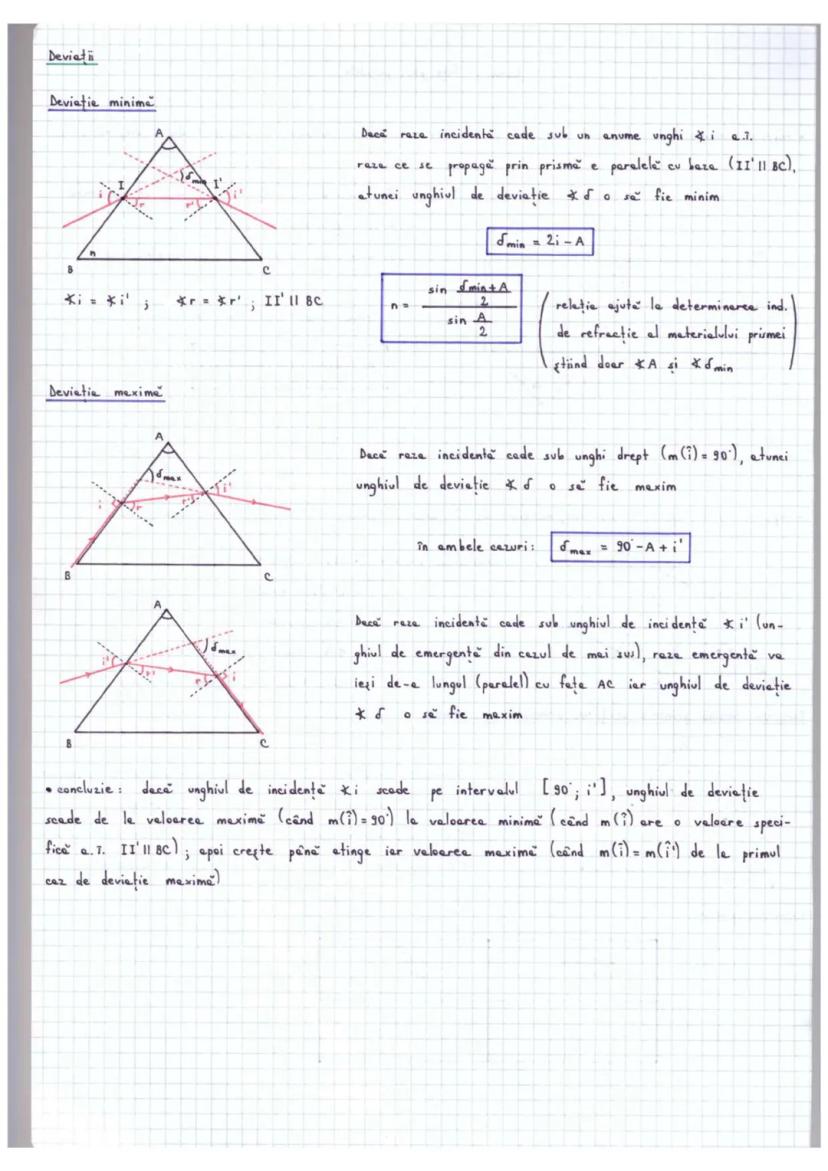 Deviații
Deviație minimă
A
δmin
I
I'
i
i'
r
r'
n
B
C
∢i = ∢i' ; ∢r = ∢r' ; II' || BC
Dacă raza incidentă cade sub un anume unghi ∢i a.î.
raza ce se propagă prin prismă e paralelă cu baza (II' || BC),
atunci unghiul de deviație ∢δ o să fie minim
δmin = 2i - A
n = sin (δmin + A)/2 / sin A/2
relație ajută la determinarea ind.
de refracție al materialului prismei
știind doar ∢A și ∢δmin
Deviație maximă
A
δmax
i
r
r'
i'
B
C
Dacă raza incidentă cade sub unghi drept (m(î) = 90°), atunci
unghiul de deviație ∢δ o să fie maxim
în ambele cazuri: δmax = 90° - A + i'
A
δmax
i'
r'
r
i
B
C
Dacă raza incidentă cade sub unghiul de incidență ∢i' (un-
ghiul de emergență din cazul de mai sus), raza emergentă va
ieși de-a lungul (paralel) cu fața AC iar unghiul de deviație
∢δ o să fie maxim
• concluzie: dacă unghiul de incidență ∢i scade pe intervalul [90°; i'], unghiul de deviație
scade de la valoarea maximă (când m(î) = 90°) la valoarea minimă (când m(î) are o valoare speci-
fică a.î. II' || BC); apoi crește până atinge iar valoarea maximă (când m(î) = m(î') de la primul
caz de deviație maximă)